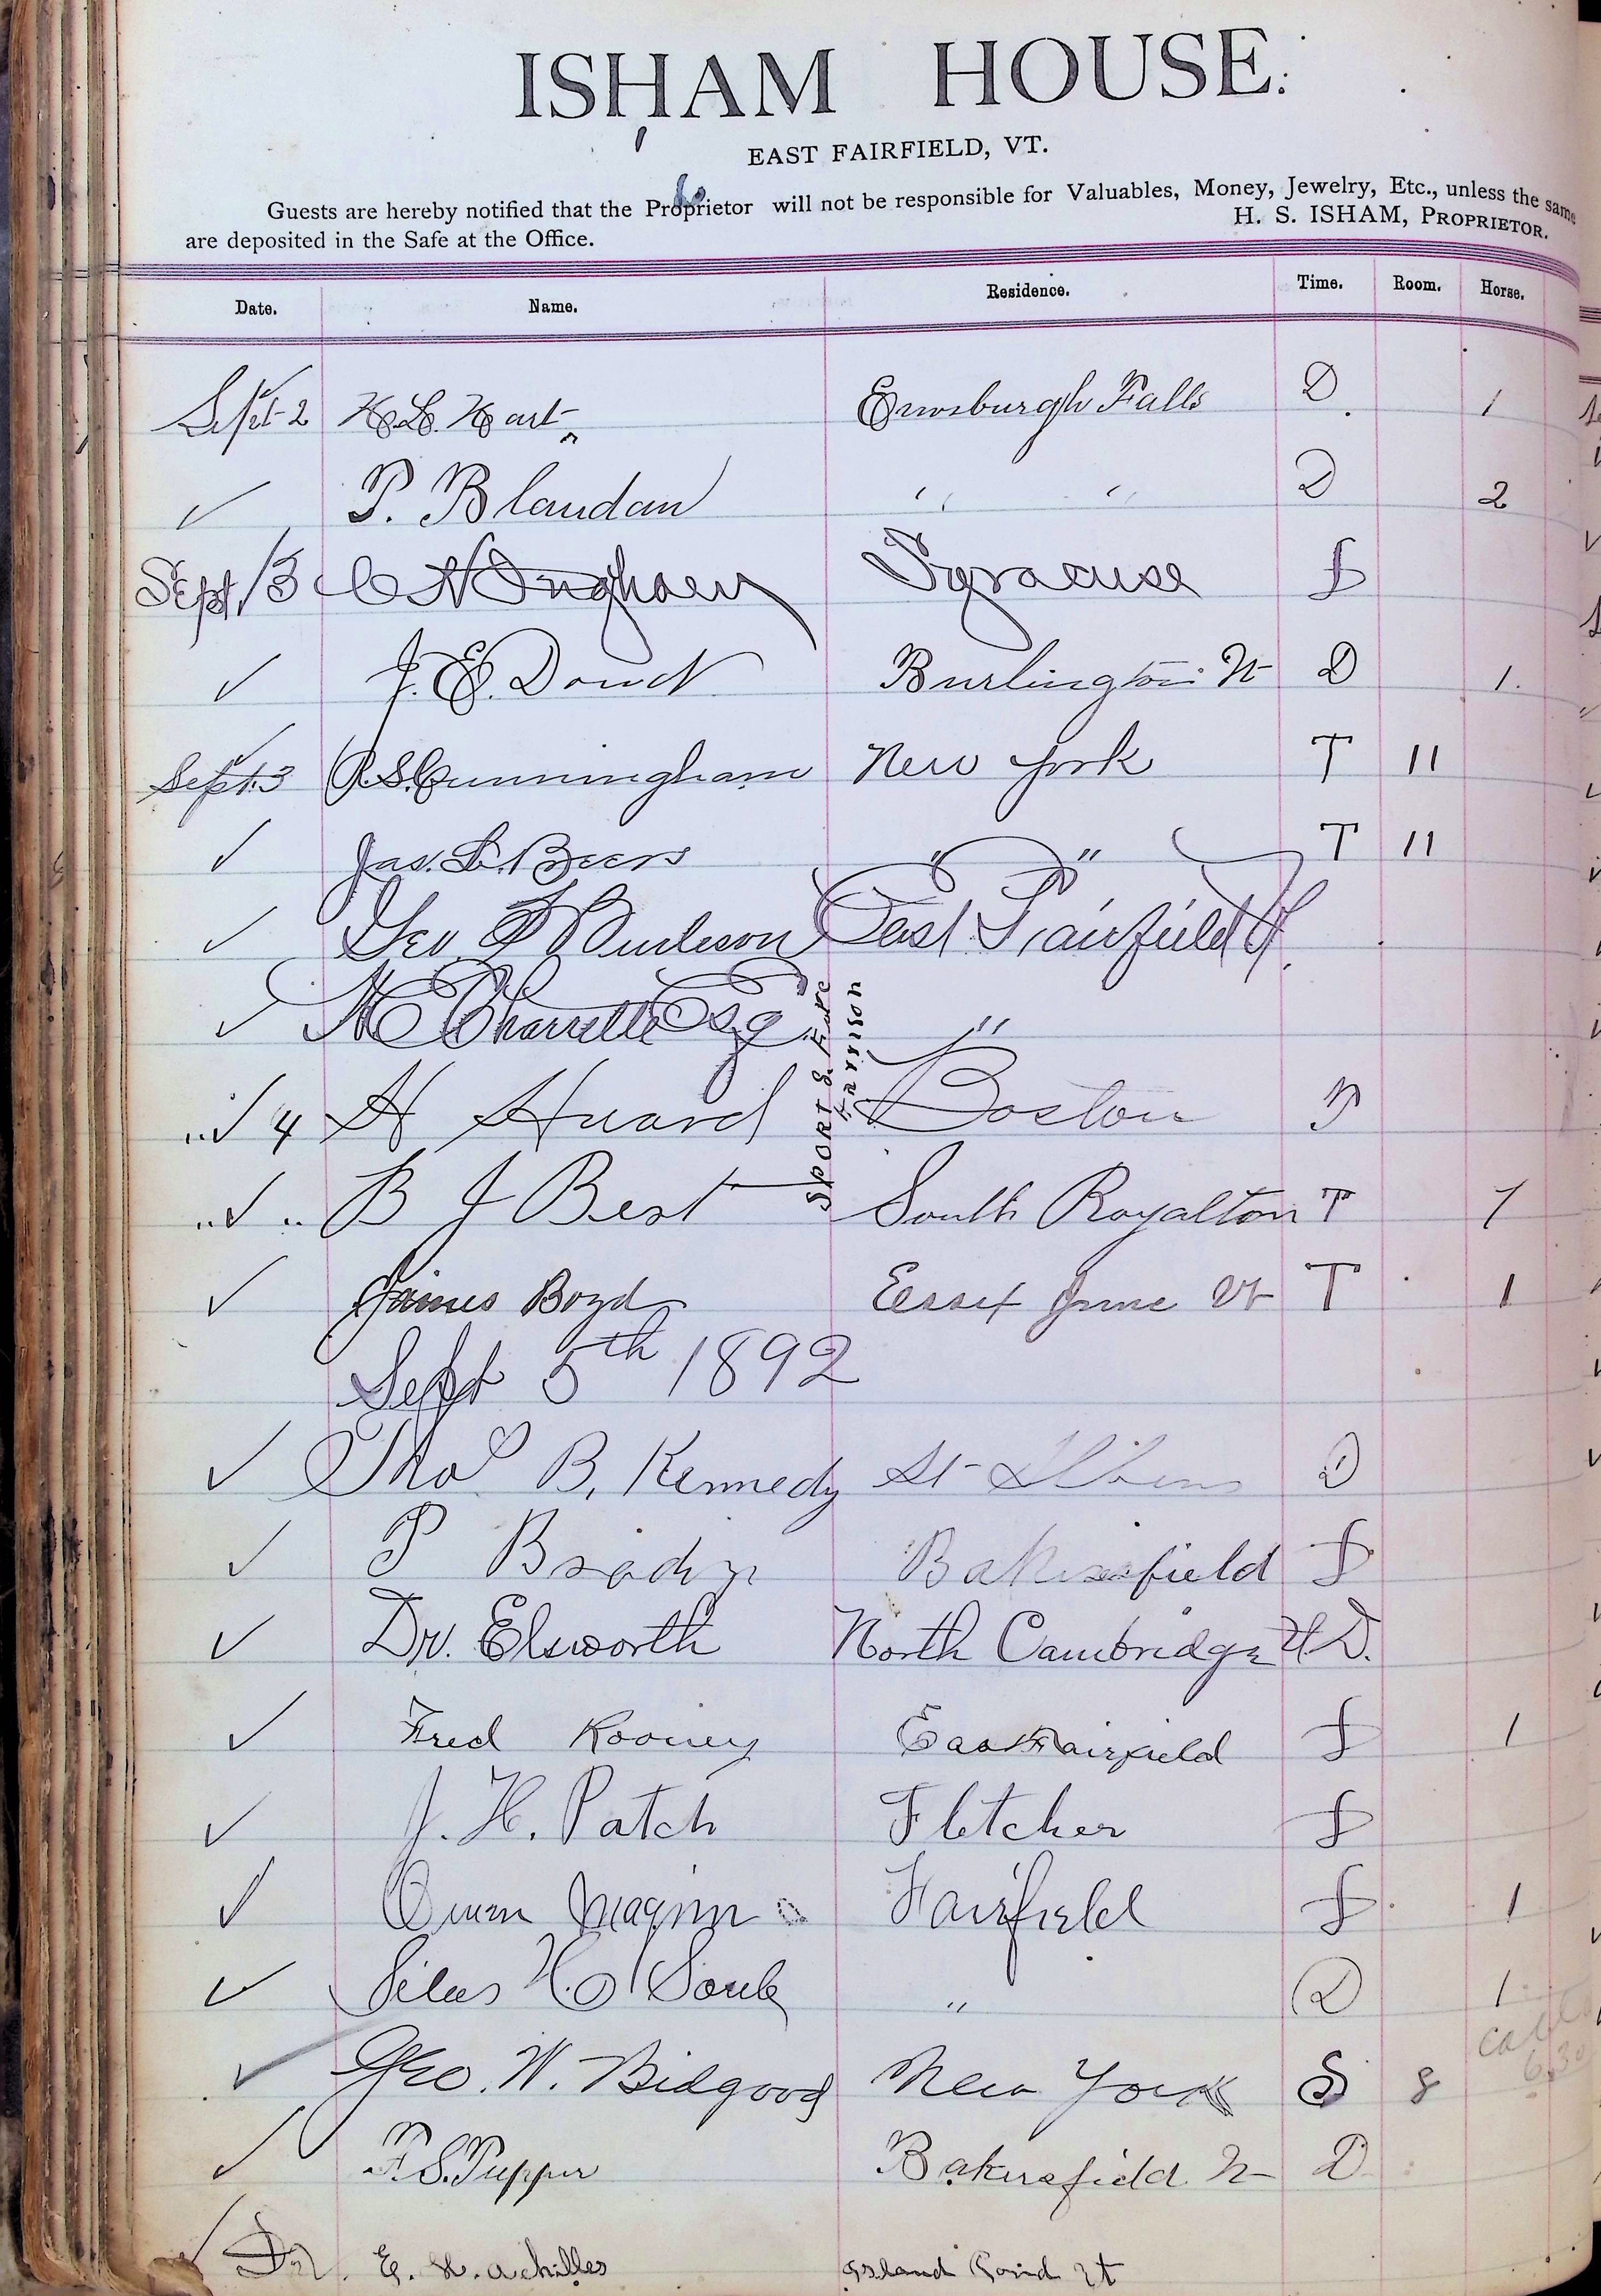 ISHAM HOUSE.
EAST FAIRFIELD, VT.
Guests are hereby notified that the Proprietor will not be responsible for Valuables, Money, Jewelry, Etc., unless the same
are deposited in the Safe at the Office.
H. S. ISHAM, PROPRIETOR.
Date. Name. Residence. Time. Room. Horse.
Sept 2 H. L. Hart Enosburgh Falls D 1
✓ P. Blaudan " " D 2
Sept /3 Syracuse
✓ J. E. Burlington Vt D 1.
Sept. 3 R. S. Cunningham New York T 11
✓ Jas. L. Beers " " T 11
✓ Geo. Burleson East Fairfield Vt.
✓ Charrette Esq "
SPORT S. Fare
Harrison
" ✓ 4 A Huard Boston
" ✓ " B J Best South Royalton T 1
✓ James Boyd Essex Junc Vt T 1
Sept 5th 1892
✓ Thos B. Kennedy St Albans D
✓ P Brady Bakersfield
✓ Dr. Elsworth North Cambridge Vt. D.
✓ Fred Rooney East Fairfield 1
✓ J. H. Patch Fletcher
✓ Owen Maginn Fairfield 1
✓ Silas H. Soule " D 1
Call
6.30
✓ Geo. W. Bidgood New York S 8
✓ F. S. Tupper Bakersfield Vt D
✓ Dr. E. H. Achilles Island Poind Vt